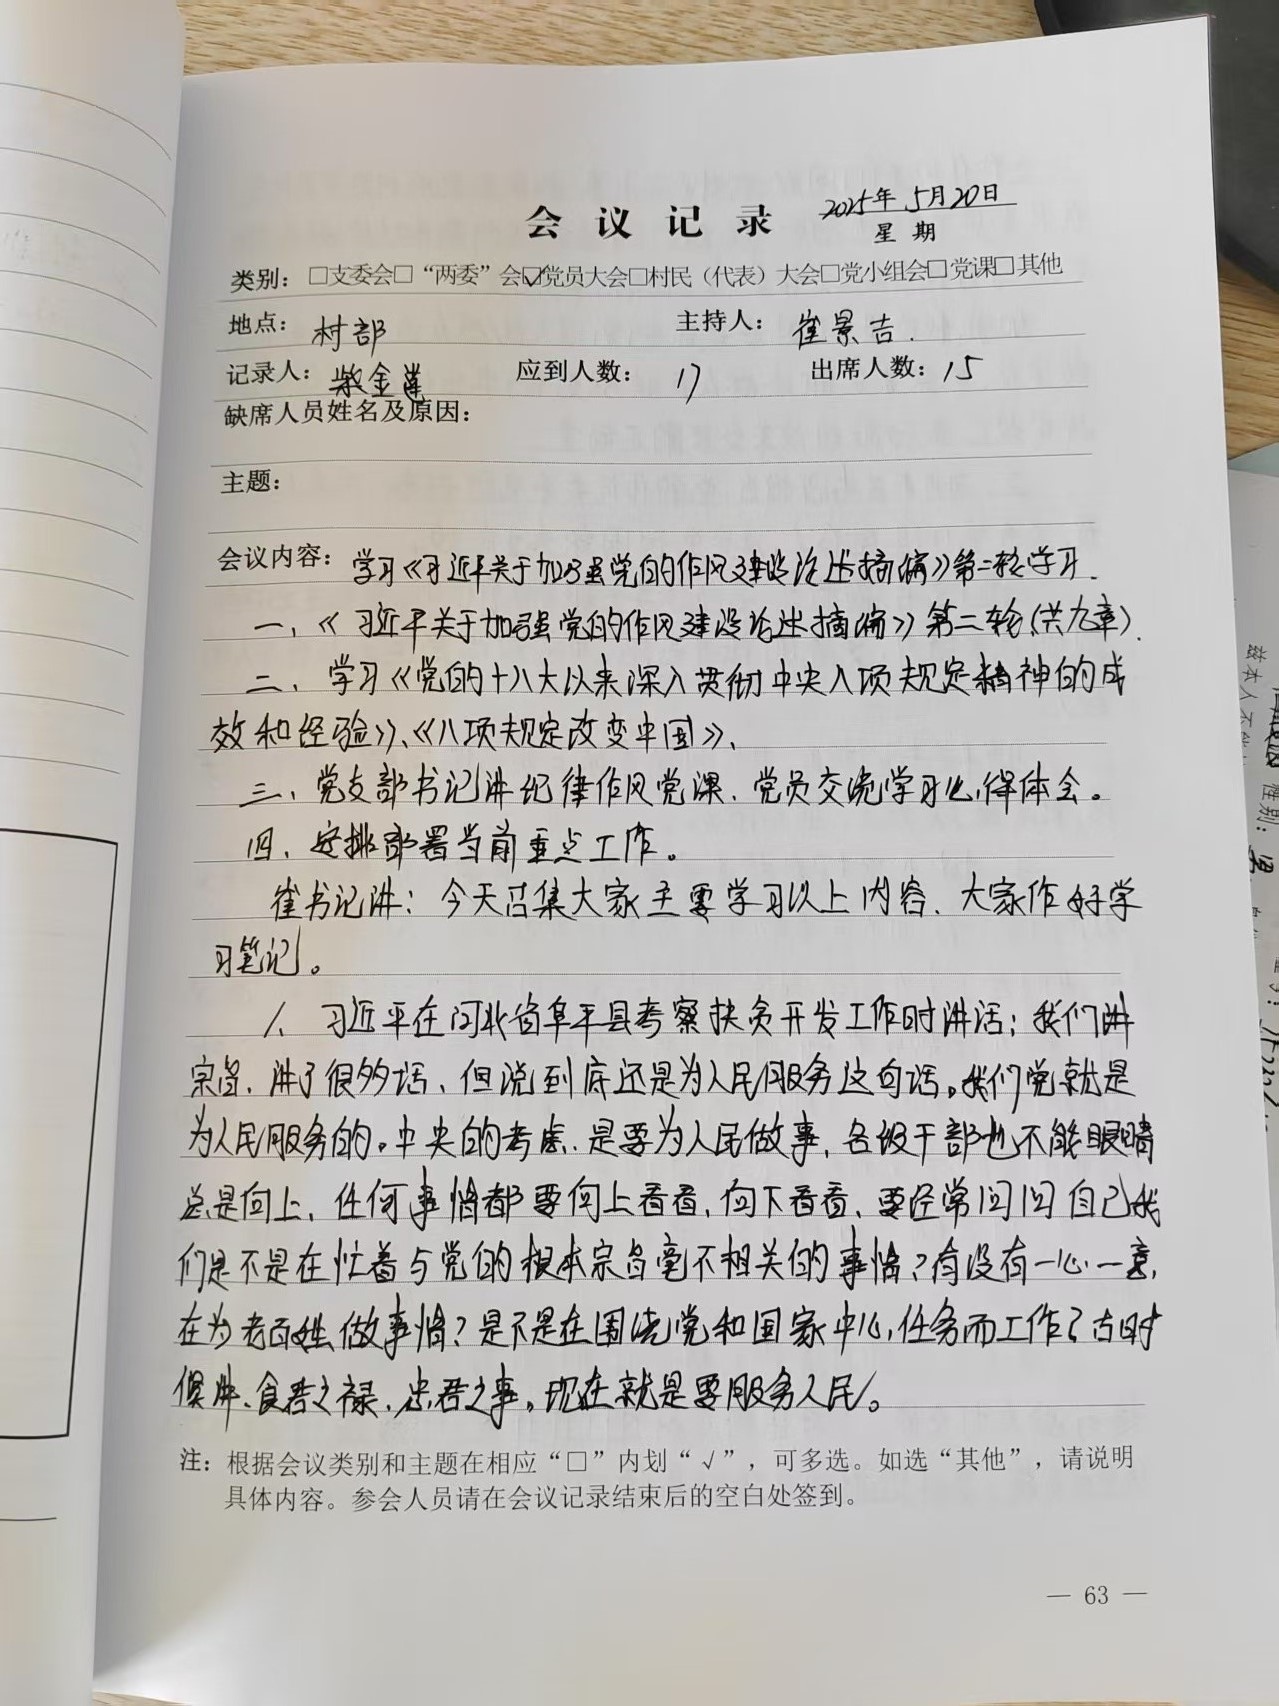 会议记录 2025年5月20日
星期
类别：□支委会□“两委”会☑党员大会□村民（代表）大会□党小组会□党课□其他
地点：村部 主持人：崔景吉.
记录人：柴金莲 应到人数：17 出席人数：15
缺席人员姓名及原因：
主题：
会议内容：学习《习近平关于加强党的作风建设论述摘编》第二轮学习.
一、《习近平关于加强党的作风建设论述摘编》第二轮(共九章).
二、学习《党的十八大以来深入贯彻中央八项规定精神的成
效和经验》、《八项规定改变中国》、
三、党支部书记讲纪律作风党课、党员交流学习心得体会。
四、安排部署当前重点工作。
崔书记讲：今天召集大家主要学习以上内容、大家作好学
习笔记。
1、习近平在河北省阜平县考察扶贫开发工作时讲话；我们讲
宗旨、讲了很多话、但说到底还是为人民服务这句话。我们党就是
为人民服务的。中央的考虑、是要为人民做事，各级干部也不能眼睛
总是向上、任何事情都要向上看看，向下看看、要经常问问自己我
们是不是在忙着与党的根本宗旨毫不相关的事情？有没有一心一意，
在为老百姓做事情？是不是在围绕党和国家中心，任务而工作？古时
候讲、食君之禄、忠君之事。现在就是要服务人民。
注：根据会议类别和主题在相应“□”内划“√”，可多选。如选“其他”，请说明
具体内容。参会人员请在会议记录结束后的空白处签到。
— 63 —
兹本人
性别：男